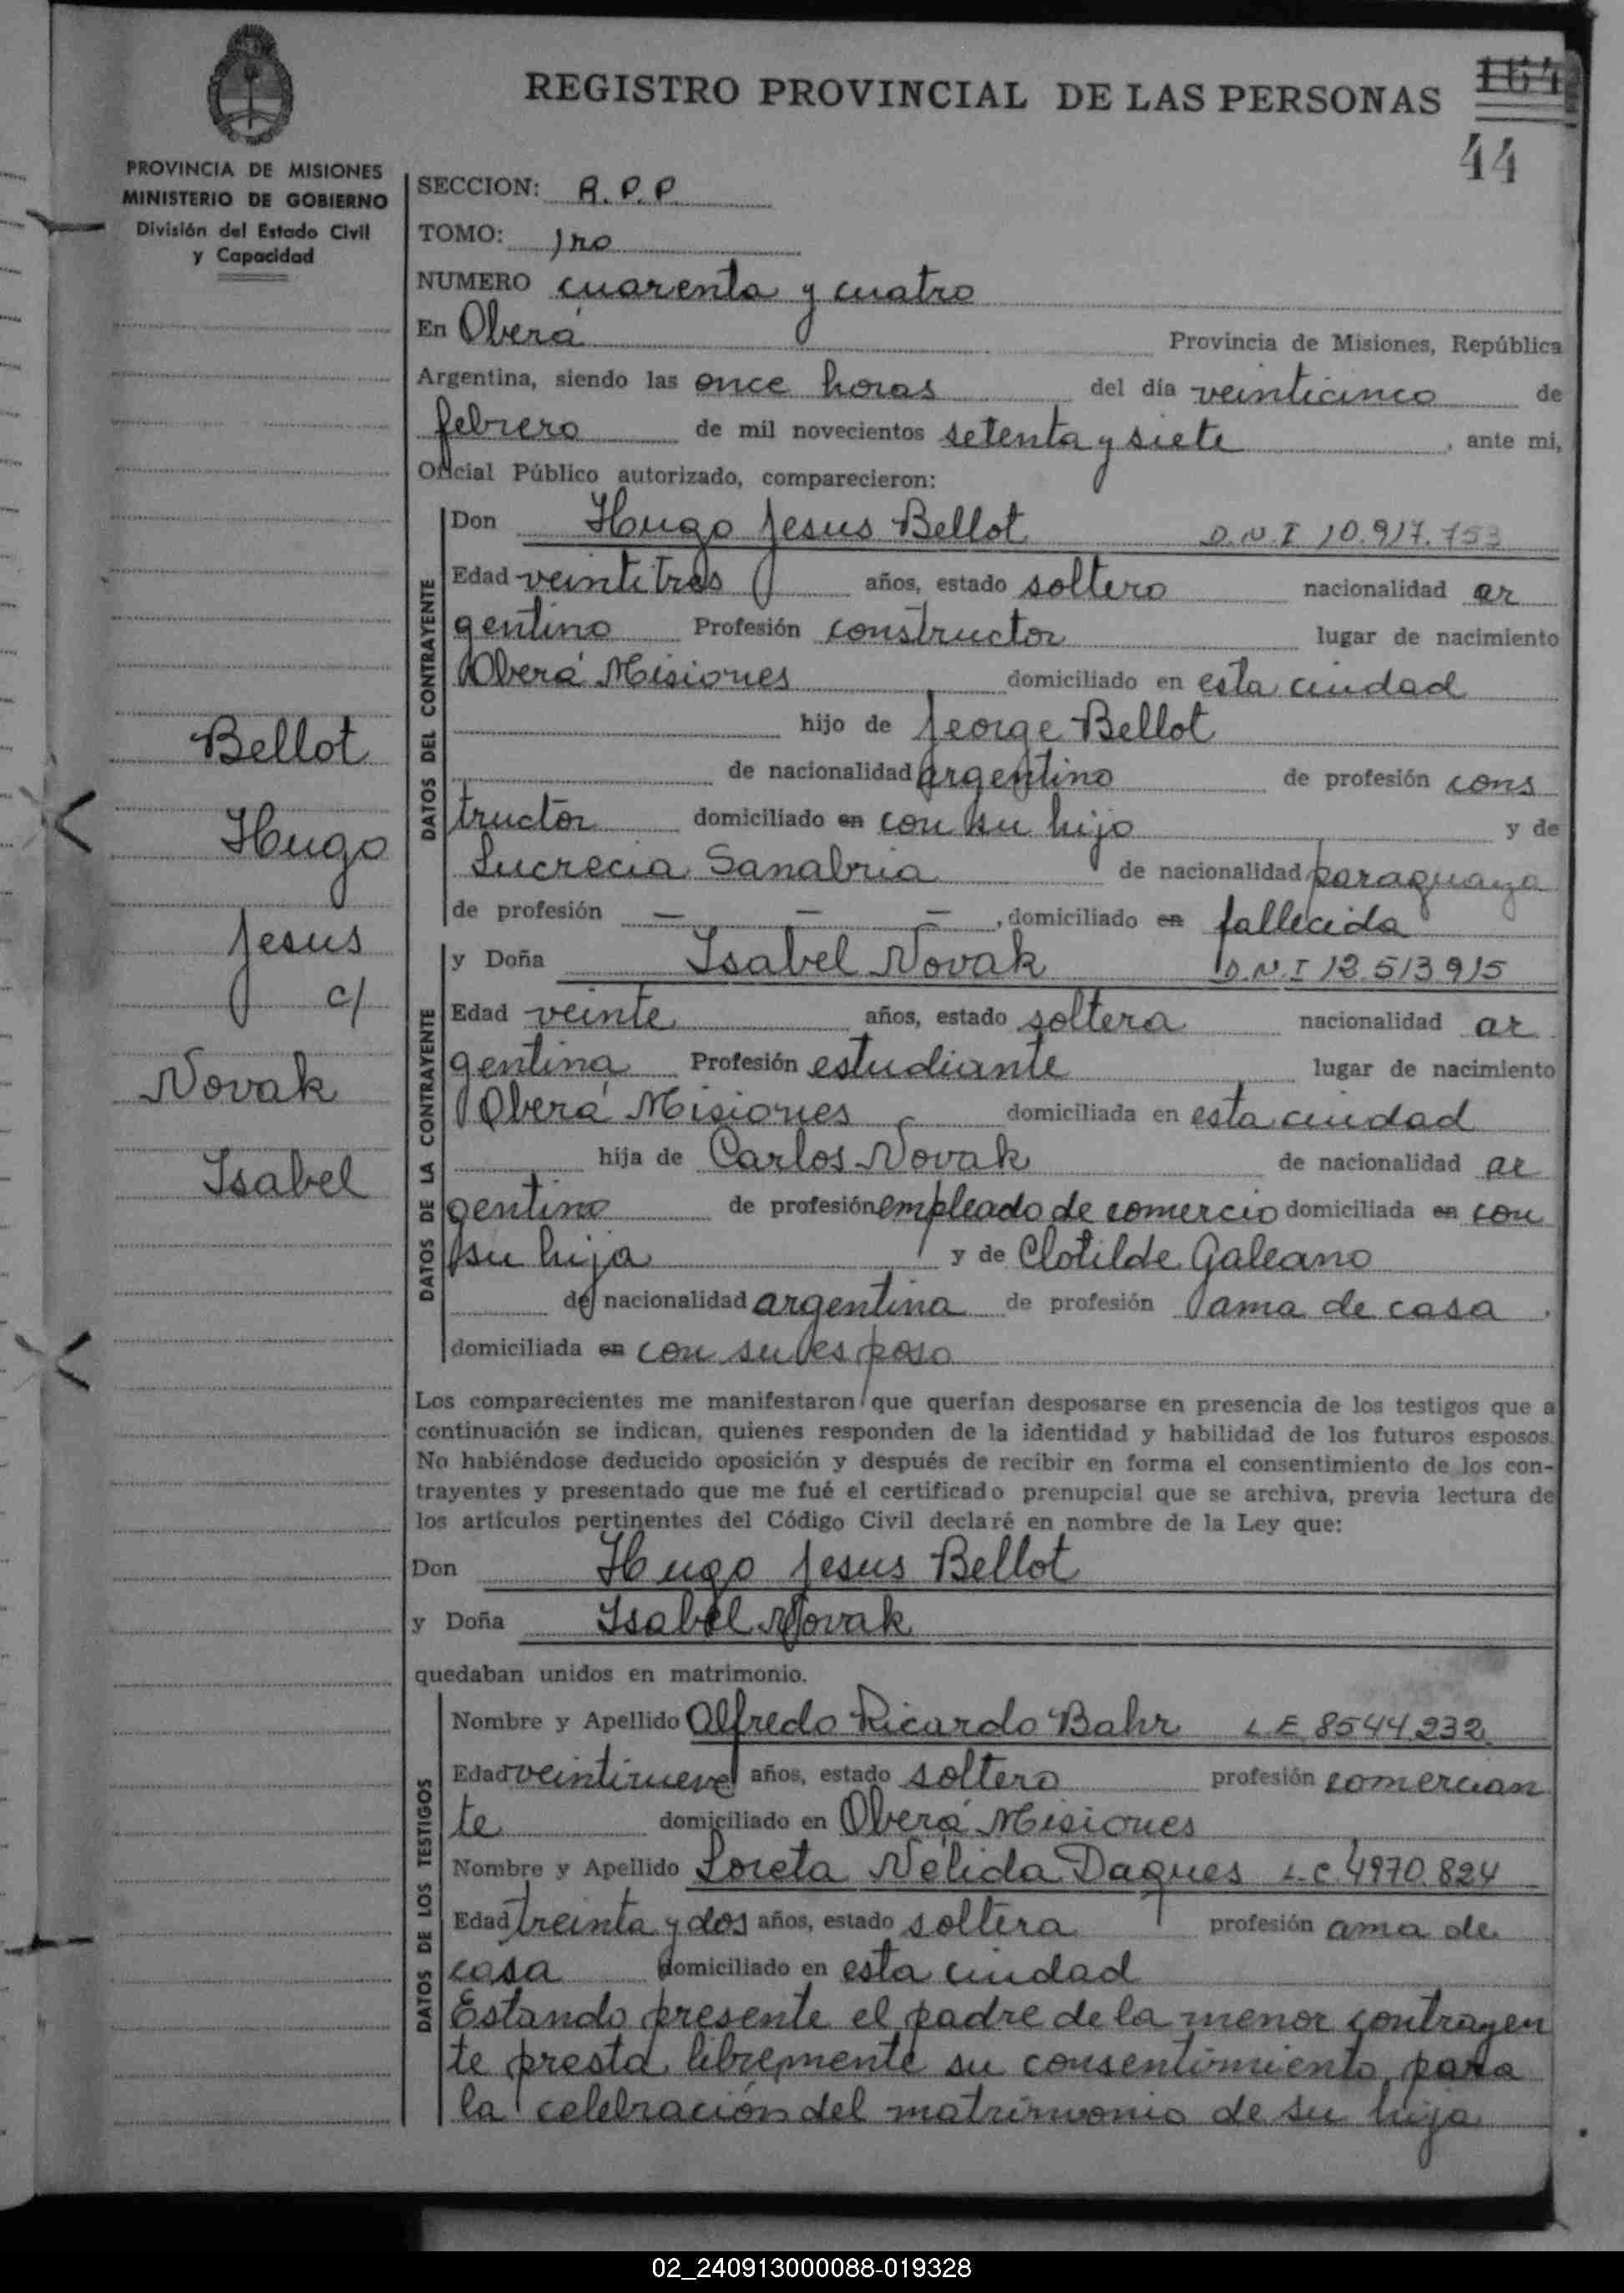 REGISTRO PROVINCIAL DE LAS PERSONAS
164
44
PROVINCIA DE MISIONES
MINISTERIO DE GOBIERNO
División del Estado Civil
y Capacidad
SECCION: R.P.P.
TOMO: 1ro
NUMERO cuarenta y cuatro
En Oberá Provincia de Misiones, República
Argentina, siendo las once horas del día veinticinco de
febrero de mil novecientos setenta y siete, ante mi,
Oficial Público autorizado, comparecieron:
DATOS DEL CONTRAYENTE
Don Hugo Jesus Bellot D.N.I 10.917.753
Edad veintitres años, estado soltero nacionalidad ar
gentino Profesión constructor lugar de nacimiento
Oberá Misiones domiciliado en esta ciudad
hijo de Jeorge Bellot
de nacionalidad argentino de profesión cons
tructor domiciliado en con su hijo y de
Lucrecia Sanabria de nacionalidad paraguaya
de profesión — — —, domiciliado en fallecida
DATOS DE LA CONTRAYENTE
y Doña Isabel Novak D.N.I 12.513.915
Edad veinte años, estado soltera nacionalidad ar
gentina Profesión estudiante lugar de nacimiento
Oberá Misiones domiciliada en esta ciudad
hija de Carlos Novak de nacionalidad ar
gentino de profesión empleado de comercio domiciliada en con
su hija y de Clotilde Galeano
de nacionalidad argentina de profesión ama de casa,
domiciliada en con su esposo
Los comparecientes me manifestaron que querían desposarse en presencia de los testigos que a
continuación se indican, quienes responden de la identidad y habilidad de los futuros esposos.
No habiéndose deducido oposición y después de recibir en forma el consentimiento de los con-
trayentes y presentado que me fué el certificado prenupcial que se archiva, previa lectura de
los artículos pertinentes del Código Civil declaré en nombre de la Ley que:
Don Hugo Jesus Bellot
y Doña Isabel Novak
quedaban unidos en matrimonio.
DATOS DE LOS TESTIGOS
Nombre y Apellido Alfredo Ricardo Bahr L.E 8544.232
Edad veintinueve años, estado soltero profesión comercian
te domiciliado en Oberá Misiones
Nombre y Apellido Loreta Nélida Daques L.C. 4970.824
Edad treinta y dos años, estado soltera profesión ama de
casa domiciliado en esta ciudad
Estando presente el padre de la menor contrayen
te presta libremente su consentimiento para
la celebración del matrimonio de su hija
Bellot
Hugo
Jesus
c/
Novak
Isabel
02_240913000088-019328